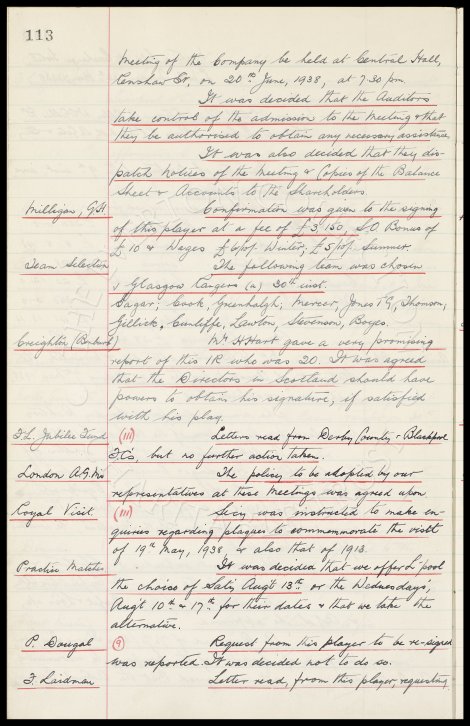 113
Meeting of the Company be held at Central Hall,
Renshaw St, on 20th June, 1938, at 7.30 pm.
It was decided that the Auditors
take control of the admission to the Meeting & that
they be authorised to obtain any necessary assistance.
It was also decided that they dis-
patch notices of the Meeting & Copies of the Balance
Sheet & Accounts to the Shareholders.
Milligan, G.H. Confirmation was given to the signing
of this player at a fee of £3,150, S.O Bonus of
£10 & Wages £6 pf Winter, £5 pf Summer.
Team Selection The following team was chosen
v Glasgow Rangers (a) 30th inst.
Sagar; Cook, Greenhalgh; Mercer, Jones TG, Thomson,
Gillick, Cunliffe, Lawton, Stevenson, Boyes.
Creighton Mr H Hart gave a very promising
report of this IR who was 20. It was agreed
that the Directors in Scotland should have
powers to obtain his signature, if satisfied
with his play.
F.L. Jubilee Fund (111) Letters read from Derby County & Blackpool
F.Cs, but no further action taken.
London A.G.Ms The policy to be adopted by our
representatives at these Meetings was agreed upon
Royal Visit (111) Secy was instructed to make en-
quiries regarding plaques to commemorate the visit
of 19th May, 1938 & also that of 1913.
Practice Matches It was decided that we offer L'pool
the choice of Saty, Augt 13th or the Wednesdays,
Augt 10th & 17th for their dates & that we take the
alternative.
P. Dougal (9) Request from this player to be re-signed
was reported. It was decided not to do so.
F. Laidman Letter read, from this player, requesting